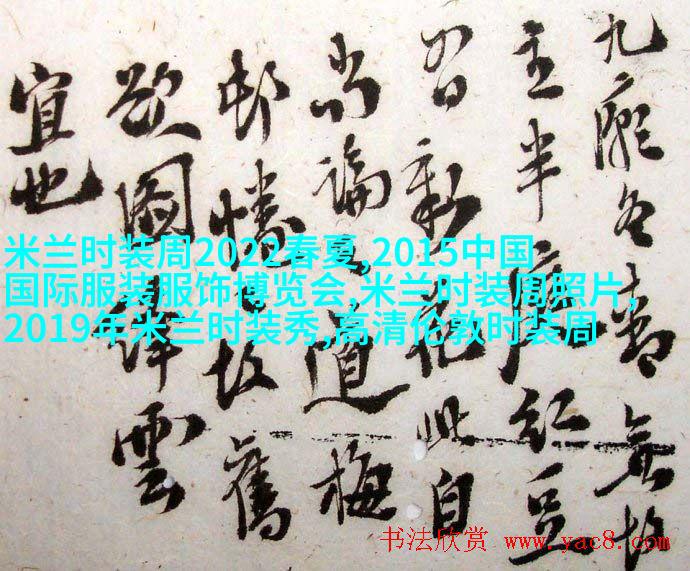 九
主半 红豆
新花此自
尚論 道梅
邨 故舊
欲圖 雲
宜也
米兰时装周2022春夏,2015中国
国际服装服饰博览会,米兰时装周照片,
2019年米兰时装秀,高清伦敦时装周
书法欣赏 www.yac8.com